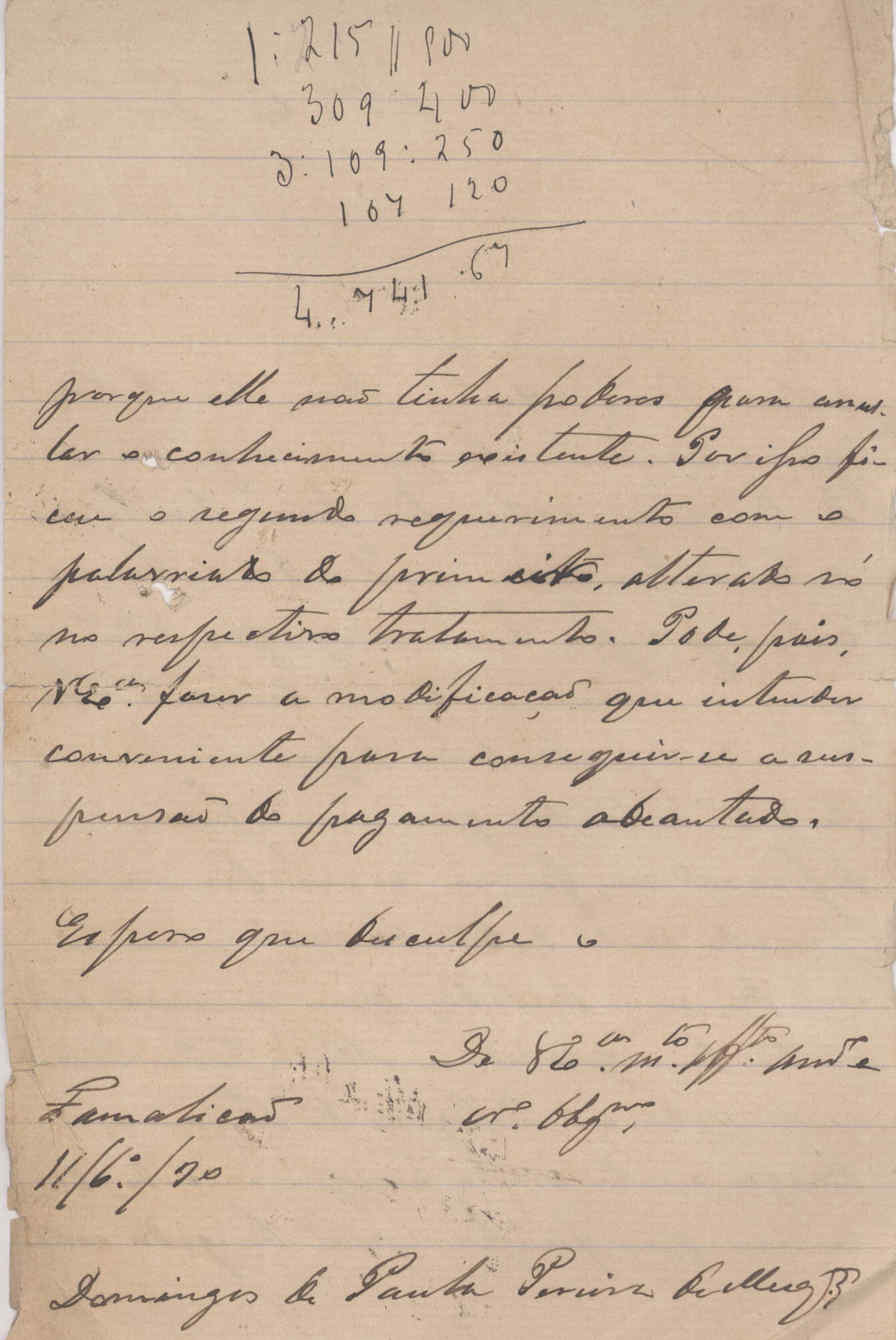 1:215||900
309 400
3:109:250
107 120
4.:741.67
porque elle não tinha poderes para anul-
lar o conhecimento existente. Por isso fi-
cou o segundo requerimento com o
palavriado do primeiro, alterado só
no respectivo tratamento. Pode, pois,
V. Ex.cia fazer a modificação que intender
conveniente para conseguir-se a sus-
pensão do pagamento adeantado.
Espero que desculpe o
De V. Ex.cia m.to aff.to am.o e
cr.o obg.mo
Famalicão
11/6.º/90
Domingos de Paula Pereira